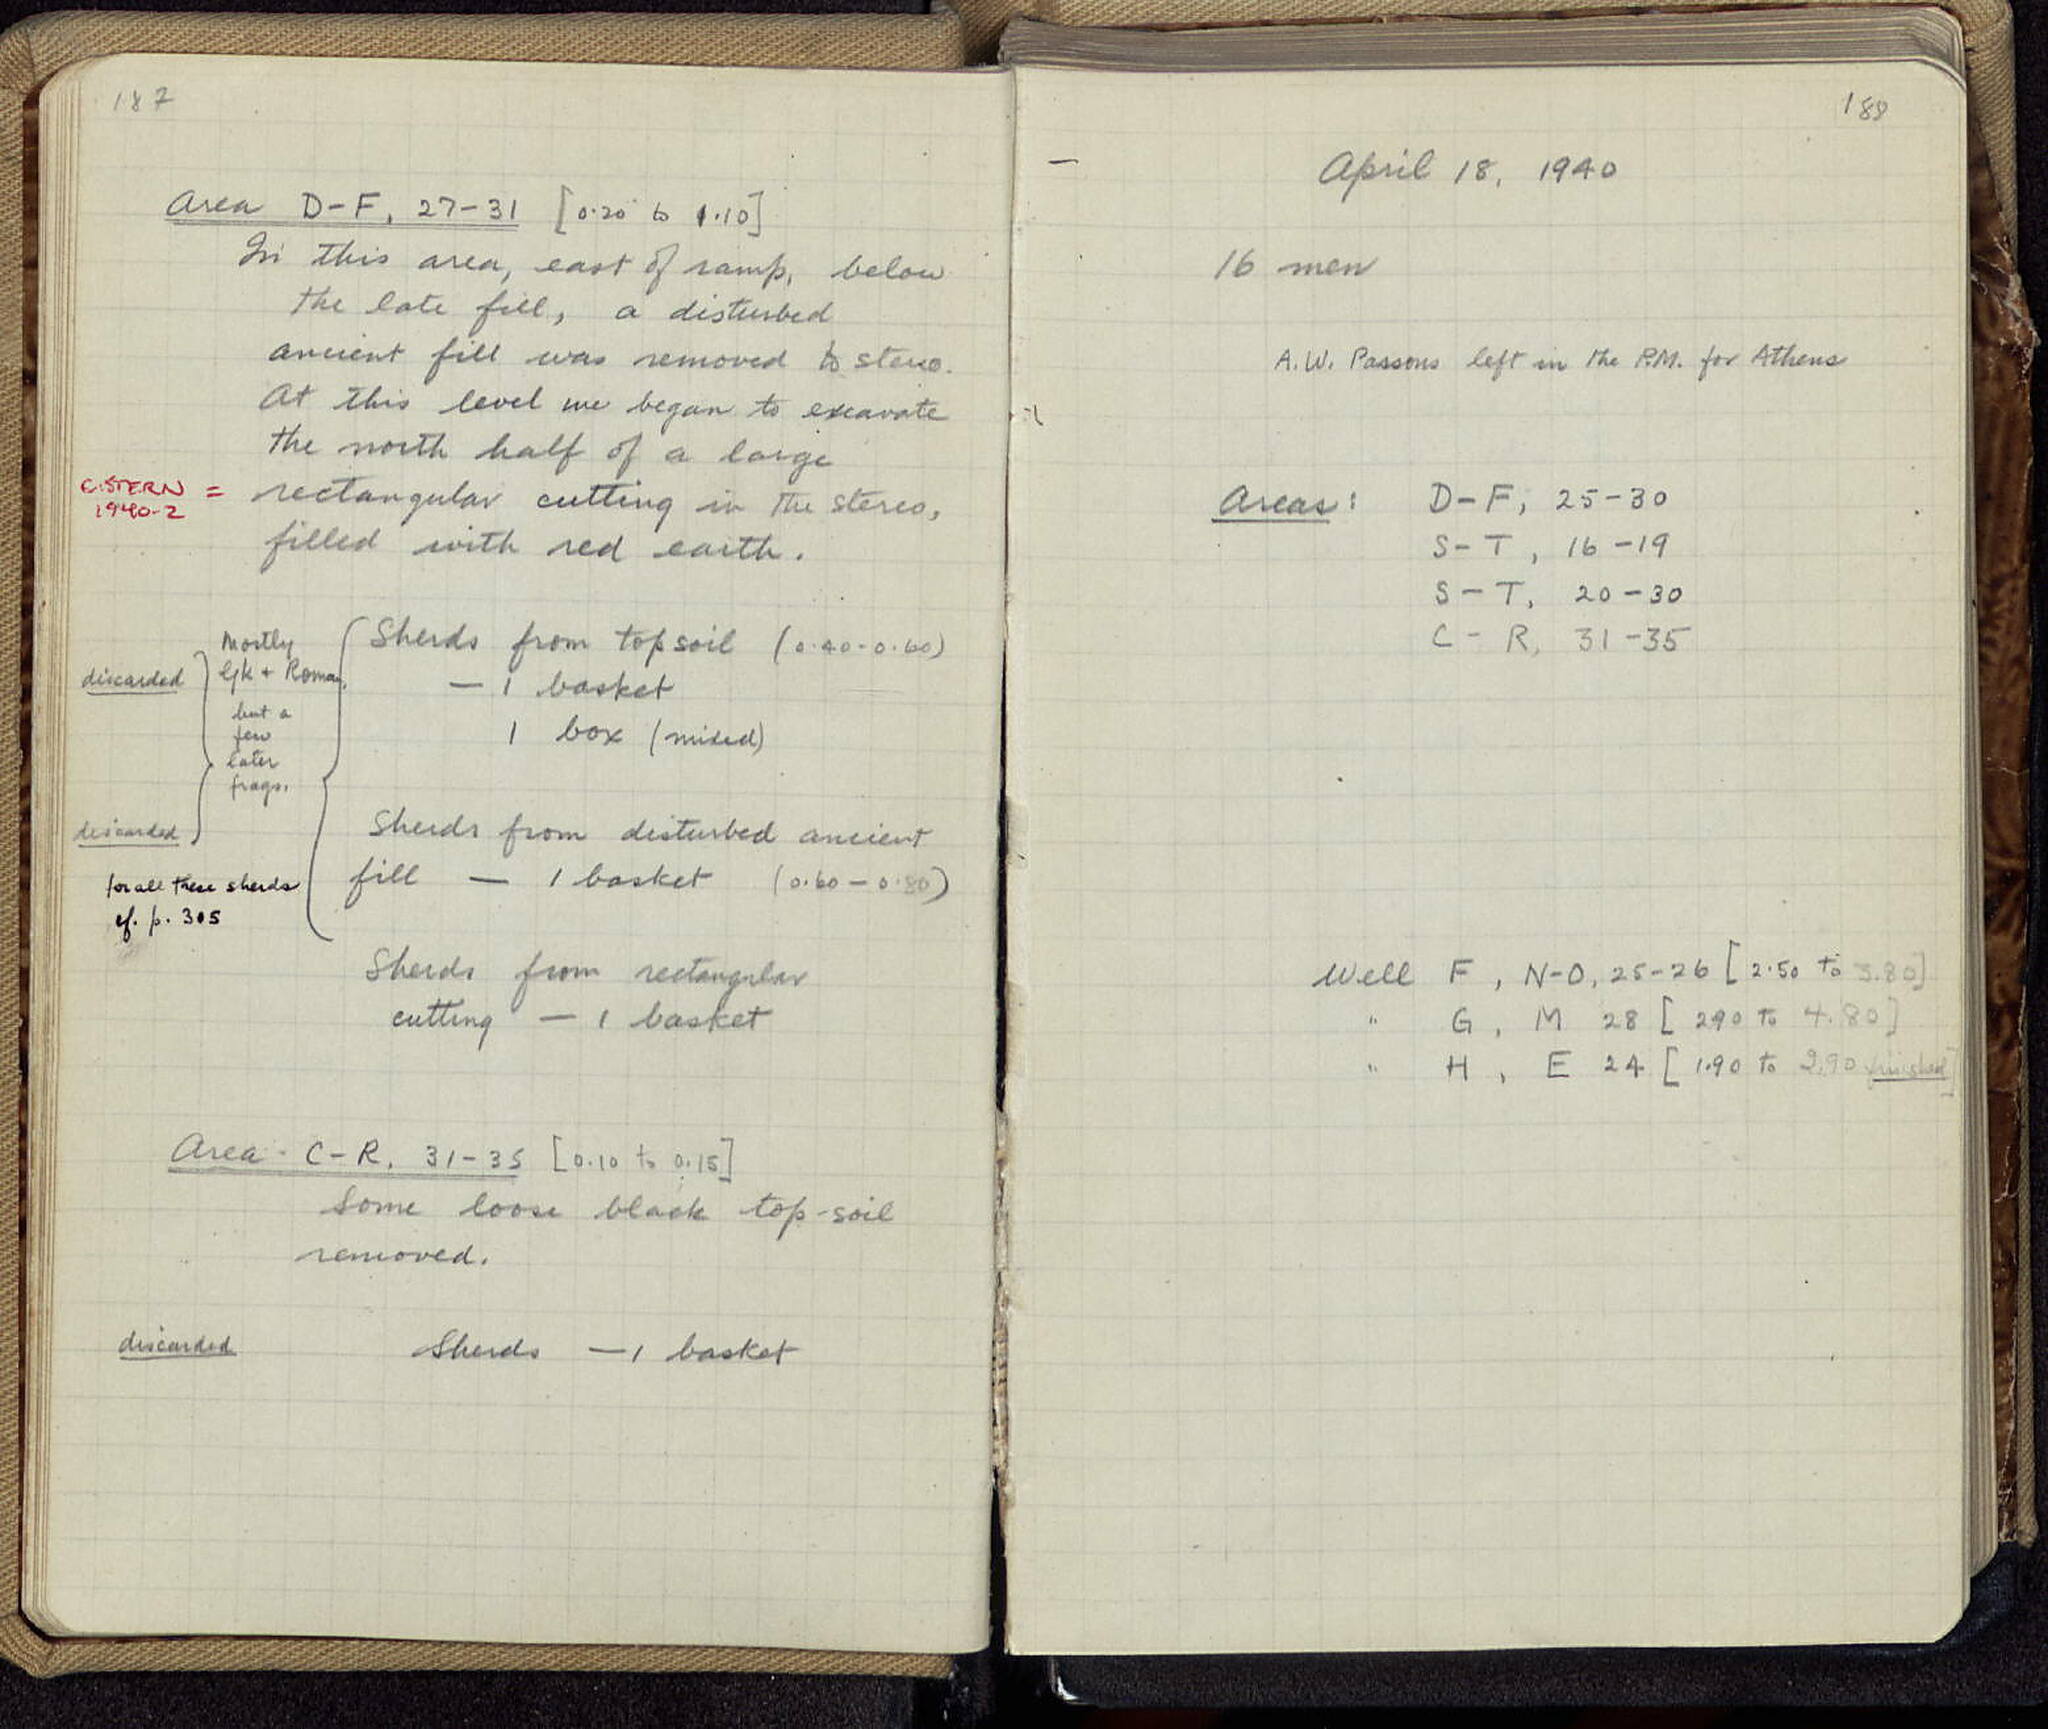 187
Area D-F, 27-31 [0.20 to 1.10]
In this area, east of ramp, below
the late fill, a disturbed
ancient fill was removed to stereo.
At this level we began to excavate
the north half of a large
CISTERN
1940-2
= rectangular cutting in the stereo,
filled with red earth.
discarded
Mostly
Gk + Roman,
but a
few
later
frags.
Sherds from topsoil (0.40-0.60)
— 1 basket
1 box (mixed)
discarded
Sherds from disturbed ancient
fill — 1 basket (0.60-0.80)
for all these sherds
cf. p. 305
Sherds from rectangular
cutting — 1 basket
Area C-R, 31-35 [0.10 to 0.15]
Some loose black top-soil
removed.
discarded Sherds — 1 basket
188
April 18, 1940
16 men
A.W. Parsons left in the P.M. for Athens
Areas: D-F, 25-30
S-T, 16-19
S-T, 20-30
C-R, 31-35
Well F, N-O, 25-26 [2.50 to 3.80]
" G, M 28 [2.90 to 4.80]
" H, E 24 [1.90 to 2.90 finished]